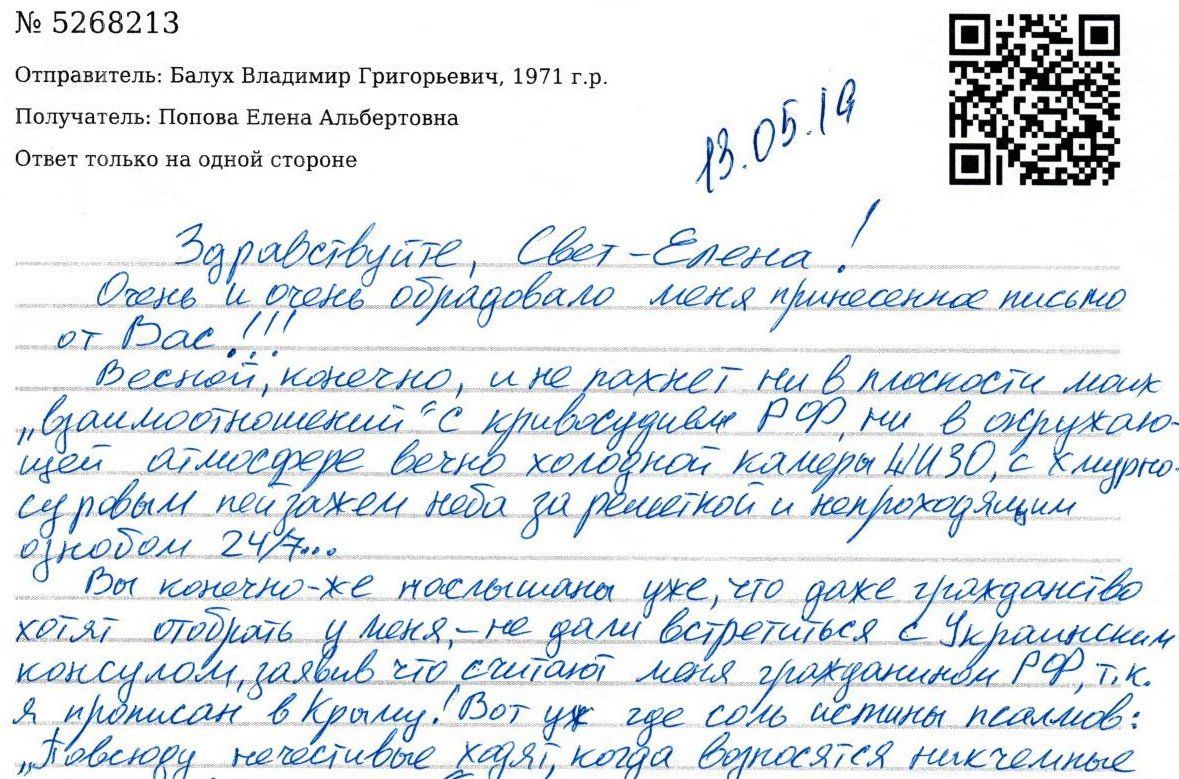 № 5268213
Отправитель: Балух Владимир Григорьевич, 1971 г.р.
Получатель: Попова Елена Альбертовна
Ответ только на одной стороне
13.05.19
Здравствуйте, Свет-Елена!
Очень и очень обрадовало меня принесенное письмо
от Вас!!!
Весной, конечно, и не пахнет ни в плоскости моих
„взаимоотношений“ с кривосудием РФ, ни в окружаю-
щей атмосфере вечно холодной камеры ШИЗО, с хмурно-
суровым пейзажем неба за решеткой и непроходящим
ознобом 24/7...
Вы конечно-же наслышаны уже, что даже гражданство
хотят отобрать у меня, – не дали встретиться с Украинским
консулом, заявив что считают меня гражданином РФ, т.к.
я прописан в Крыму! Вот уж где соль истины псалмов:
„Повсюду нечестивые ходят, когда возносятся никчемные